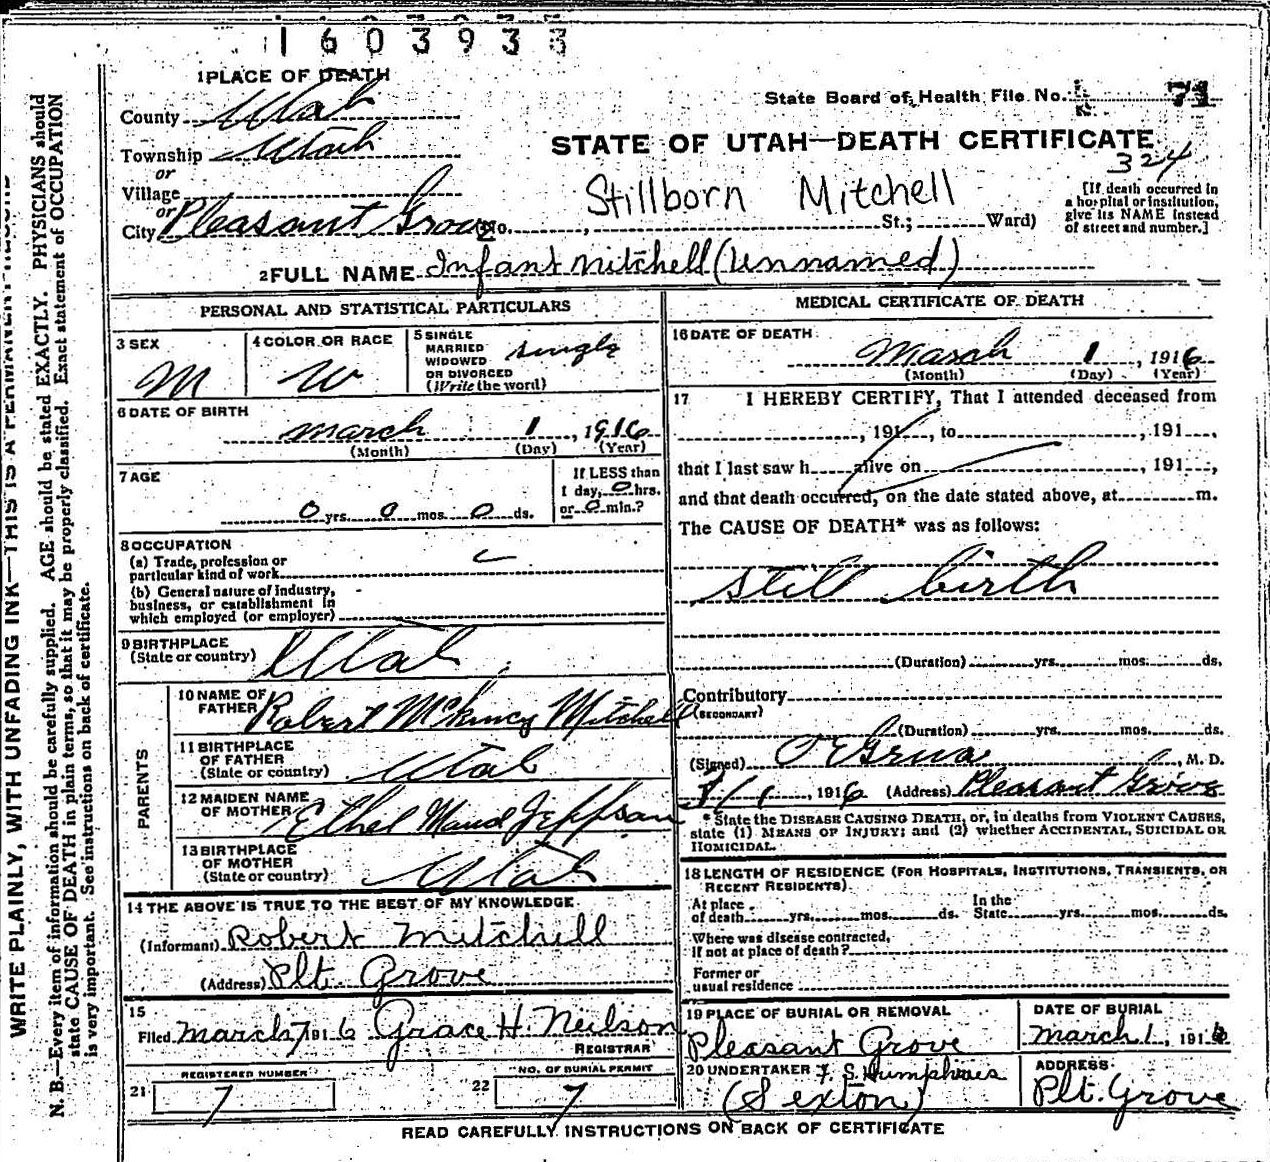 1603933
1 PLACE OF DEATH
State Board of Health File No. 71
County Utah
STATE OF UTAH—DEATH CERTIFICATE
324
Township Utah
or
Village
Stillborn Mitchell
[If death occurred in
a hospital or institution,
give its NAME instead
of street and number.]
or
City Pleasant Grove No. , St.; Ward)
2 FULL NAME Infant Mitchell (Unnamed)
PERSONAL AND STATISTICAL PARTICULARS
3 SEX M
4 COLOR OR RACE W
5 SINGLE
MARRIED
WIDOWED
OR DIVORCED
(Write the word) single
6 DATE OF BIRTH
March 1, 1916
(Month) (Day) (Year)
7 AGE
If LESS than
1 day, 0 hrs.
0 yrs. 0 mos. 0 ds. or 0 min.?
8 OCCUPATION
(a) Trade, profession or
particular kind of work
(b) General nature of industry,
business, or establishment in
which employed (or employer)
9 BIRTHPLACE
(State or country) Utah
PARENTS
10 NAME OF
FATHER Robert McKincy Mitchell
11 BIRTHPLACE
OF FATHER
(State or country) Utah
12 MAIDEN NAME
OF MOTHER Ethel Maud Jeppson
13 BIRTHPLACE
OF MOTHER
(State or country) Utah
14 THE ABOVE IS TRUE TO THE BEST OF MY KNOWLEDGE
(Informant) Robert Mitchell
(Address) Plt Grove
15
Filed March 7 1916 Grace H. Neilson
REGISTRAR
REGISTERED NUMBER
21 7
NO. OF BURIAL PERMIT
22 7
MEDICAL CERTIFICATE OF DEATH
16 DATE OF DEATH
March 1, 1916
(Month) (Day) (Year)
17 I HEREBY CERTIFY, That I attended deceased from
, 191 , to , 191 ,
that I last saw h alive on , 191 ,
and that death occurred, on the date stated above, at m.
The CAUSE OF DEATH* was as follows:
still birth
(Duration) yrs. mos. ds.
Contributory
(SECONDARY)
(Duration) yrs. mos. ds.
(Signed) O E Grua, M. D.
3/1, 1916 (Address) Pleasant Grove
* State the DISEASE CAUSING DEATH, or, in deaths from VIOLENT CAUSES,
state (1) MEANS OF INJURY; and (2) whether ACCIDENTAL, SUICIDAL OR
HOMICIDAL.
18 LENGTH OF RESIDENCE (FOR HOSPITALS, INSTITUTIONS, TRANSIENTS, OR
RECENT RESIDENTS).
At place
of death yrs. mos. ds.
In the
State yrs. mos. ds.
Where was disease contracted,
if not at place of death?
Former or
usual residence
19 PLACE OF BURIAL OR REMOVAL
Pleasant Grove
DATE OF BURIAL
March 1, 1916
20 UNDERTAKER F. S. Humphries
(Sexton)
ADDRESS
Plt. Grove
READ CAREFULLY INSTRUCTIONS ON BACK OF CERTIFICATE
WRITE PLAINLY, WITH UNFADING INK—THIS IS A PERMANENT RECORD
N. B.—Every item of information should be carefully supplied. AGE should be stated EXACTLY. PHYSICIANS should
state CAUSE OF DEATH in plain terms, so that it may be properly classified. Exact statement of OCCUPATION
is very important. See instructions on back of certificate.